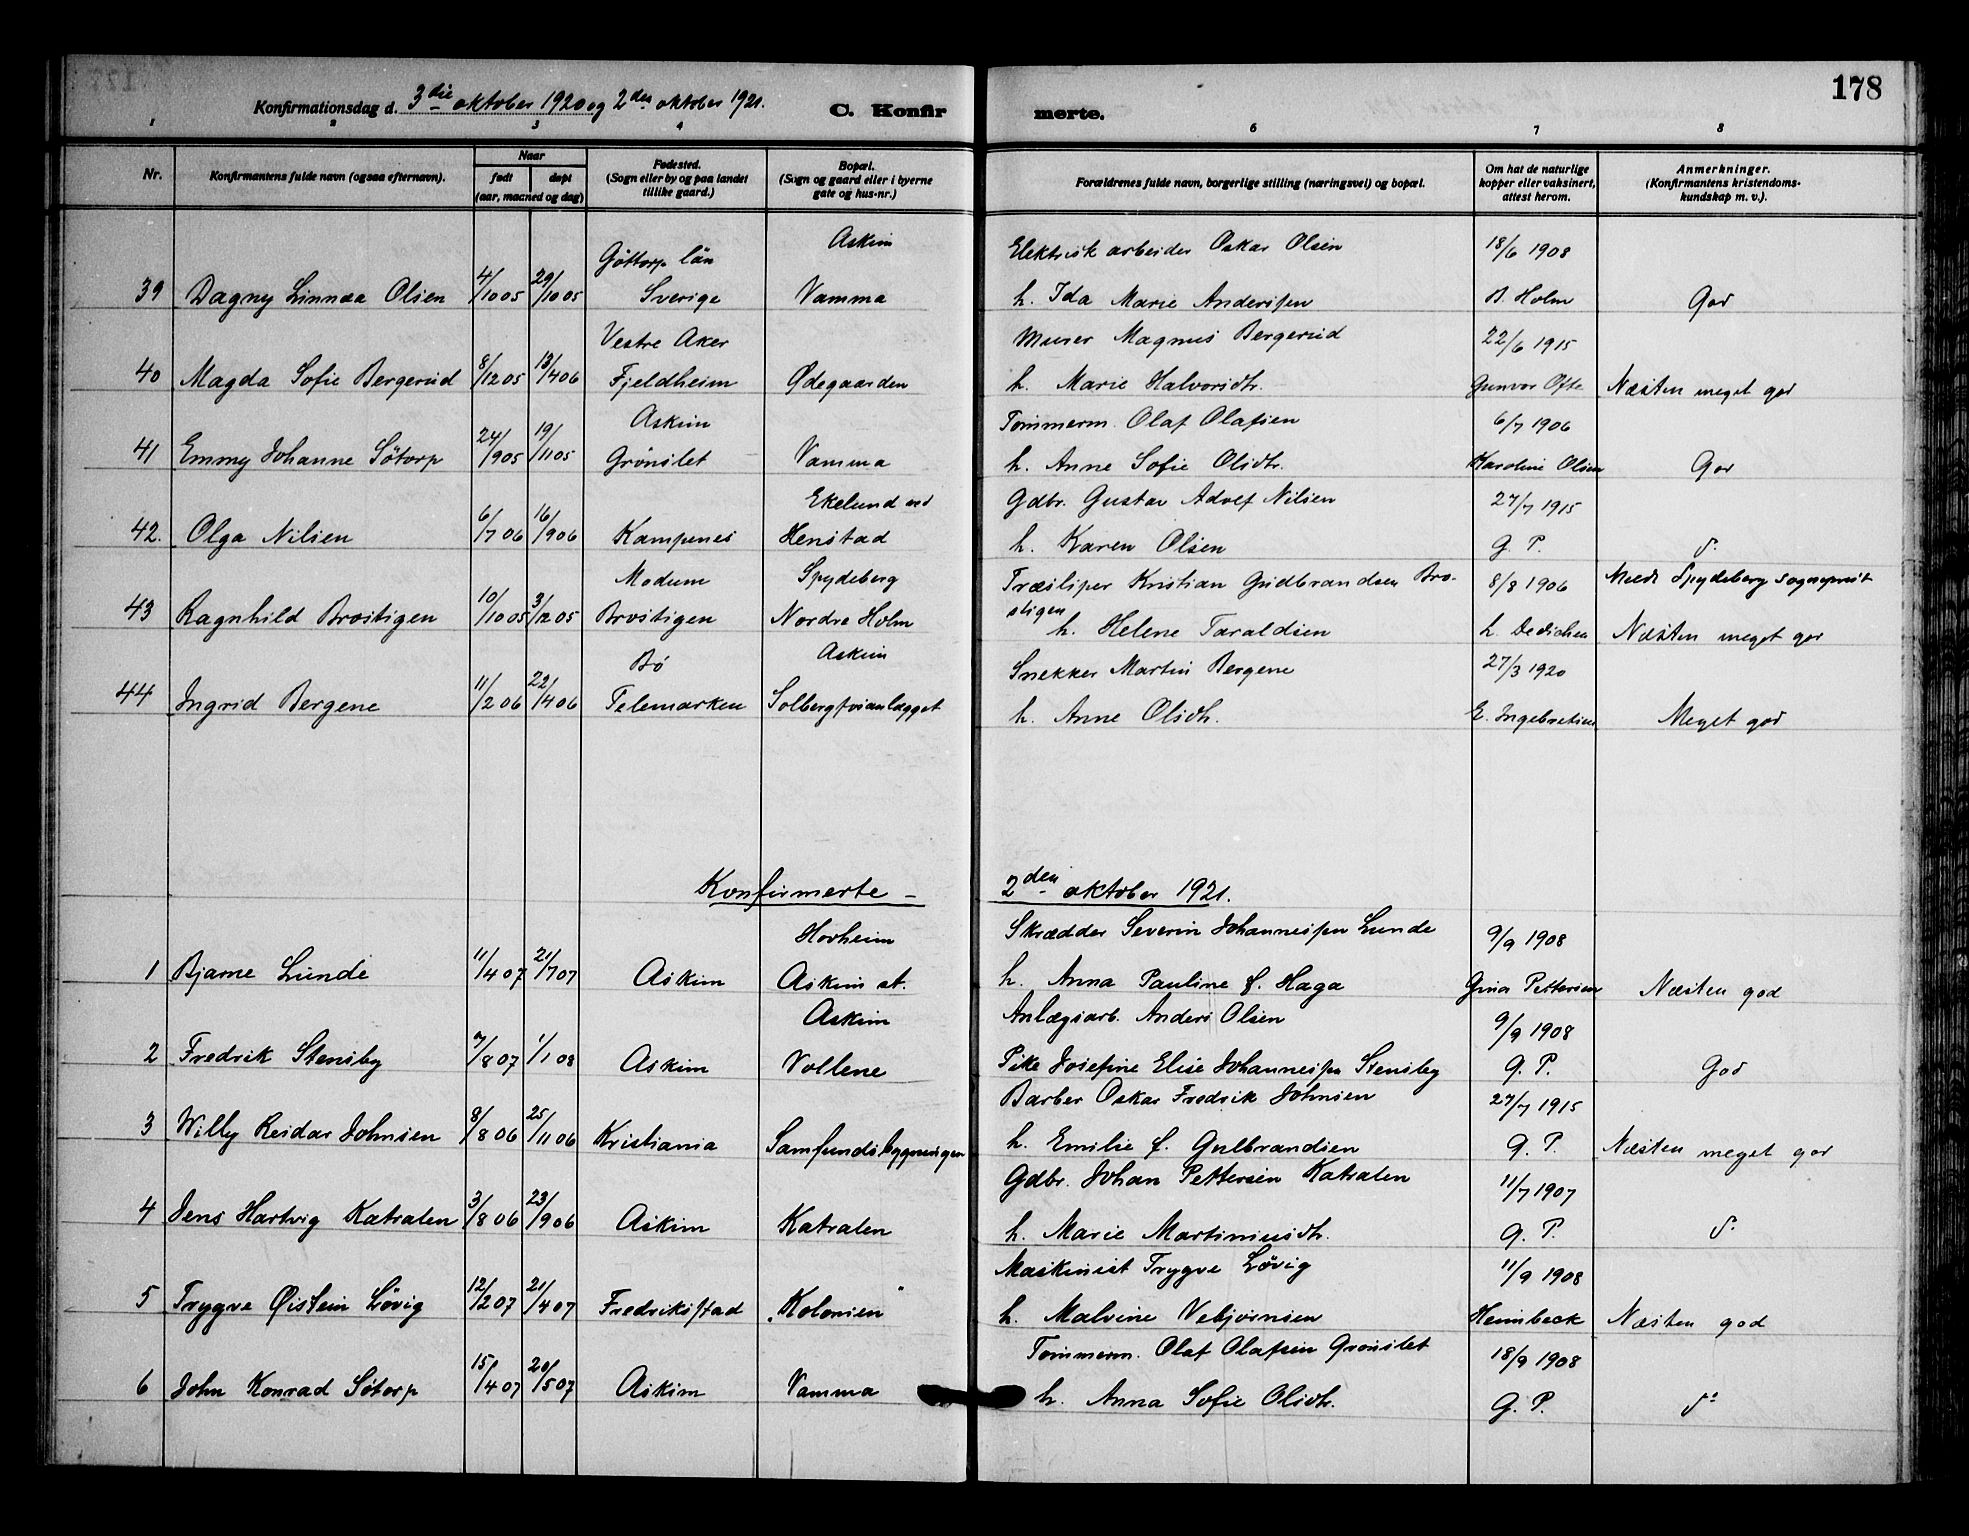 178
Konfirmationsdag d. 3die oktober 1920 og 2den oktober 1921.
C. Konfirmerte.
1 2 3 4 6 7 8
Nr.
Konfirmantens fulde navn (ogsaa efternavn).
Naar
født
døpt
(aar, maaned og dag)
Fødested.
(Sogn eller by og paa landet
tillike gaard.)
Bopæl.
(Sogn og gaard eller i byerne
gate og hus-nr.)
Forældrenes fulde navn, borgerlige stilling (næringsvei) og bopæl.
Om hat de naturlige
kopper eller vaksinert,
attest herom.
Anmerkninger.
(Konfirmantens kristendoms-
kundskap m. v.).
Göttorp län Askim Elektrisk arbeider Oskar Olsen 18/6 1908
39 Dagny Linnæa Olsen 4/10 05 29/10 05 Sverige Vamma h. Ida Marie Anderssen B. Holm God
Vestre Aker Murer Magnus Bergerud 22/6 1915
40 Magda Sofie Bergerud 8/12 05 13/4 06 Fjeldheim Ødegaarden h. Marie Halvorsdtr. Gunvor Ofte Næsten meget god
Askim Tømmerm. Olaf Olafsen 6/7 1906
41 Emmy Johanne Søtorp 24/9 05 19/11 05 Grønslet Vamma h. Anne Sofie Olsdtr. Karoline Olsen God
Ekelund ved Gdbr. Gustav Adolf Nilsen 27/7 1915
42. Olga Nilsen 6/7 06 16/9 06 Kampenes Henstad h. Karen Olsen G. P. d.
Modum Spydeberg Træsliper Kristian Gudbrandsen Bro- 8/8 1906 Meldt Spydeberg sogneprest
43 Ragnhild Brostigen 10/10 05 3/12 05 Brostigen Nordre Holm stigen h. Helene Taraldsen L. Dedichen Næsten meget god
Bø Askim Snekker Martin Bergene 27/3 1920
44 Ingrid Bergene 11/2 06 22/4 06 Telemarken Solbergfosanlægget h. Anne Olsdtr. E. Ingebretsen Meget god
Konfirmerte - 2den oktober 1921.
Hovheim Skrædder Severin Johannessen Lunde 9/9 1908
1 Bjarne Lunde 11/4 07 21/7 07 Askim Askim st. h. Anna Pauline f. Haga Gina Pettersen Næsten god
Askim Anlægsarb. Anders Olsen 9/9 1908
2 Fredrik Stensby 7/8 07 1/1 08 Askim Vollene Pike Josefine Elise Johannessen Stensby G. P. God
Barber Oskar Fredrik Johnsen 27/7 1915
3 Willy Reidar Johnsen 8/8 06 25/11 06 Kristiania Samfundsbygningen h. Emilie f. Gulbrandsen G. P. Næsten meget god
Gdbr. Johan Pettersen Katralen 11/7 1907
4 Jens Hartvig Katralen 3/8 06 23/9 06 Askim Katralen h. Marie Martiniusdtr. G. P. d.
Maskinist Trygve Løvig 11/9 1908
5 Trygve Øistein Løvig 12/2 07 21/4 07 Fredriksstad „Kolonien" h. Malvine Vebjørnsen Heimbeck Næsten god
Tømmerm. Olaf Olafsen Grønslet 18/9 1908
6 John Konrad Søtorp 15/4 07 20/5 07 Askim Vamma h. Anna Sofie Olsdtr. G. P. do